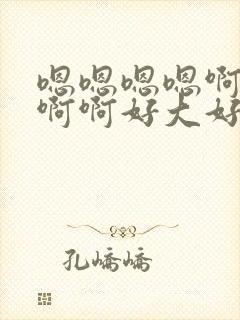 嗯嗯嗯嗯啊
啊啊好大好
孔嶠嶠